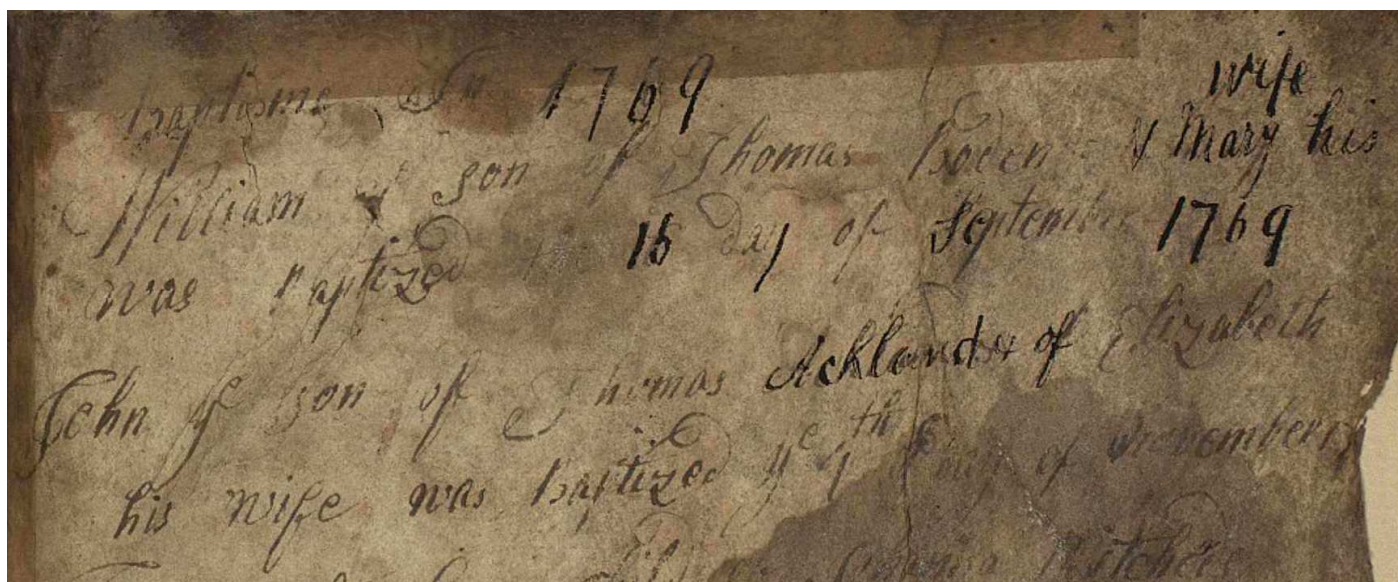 Baptisme In 1769
wife
William ye son of Thomas Boden & Mary his
was Baptized the 16 Day of September 1769
John ye son of Thomas Acklands of Elizabeth
his wife was Baptized ye 4th Day of November